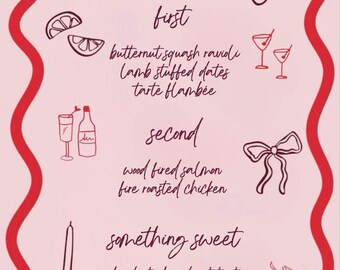 first
butternut squash ravioli
lamb stuffed dates
tarte flambée
second
wood fired salmon
fire roasted chicken
something sweet